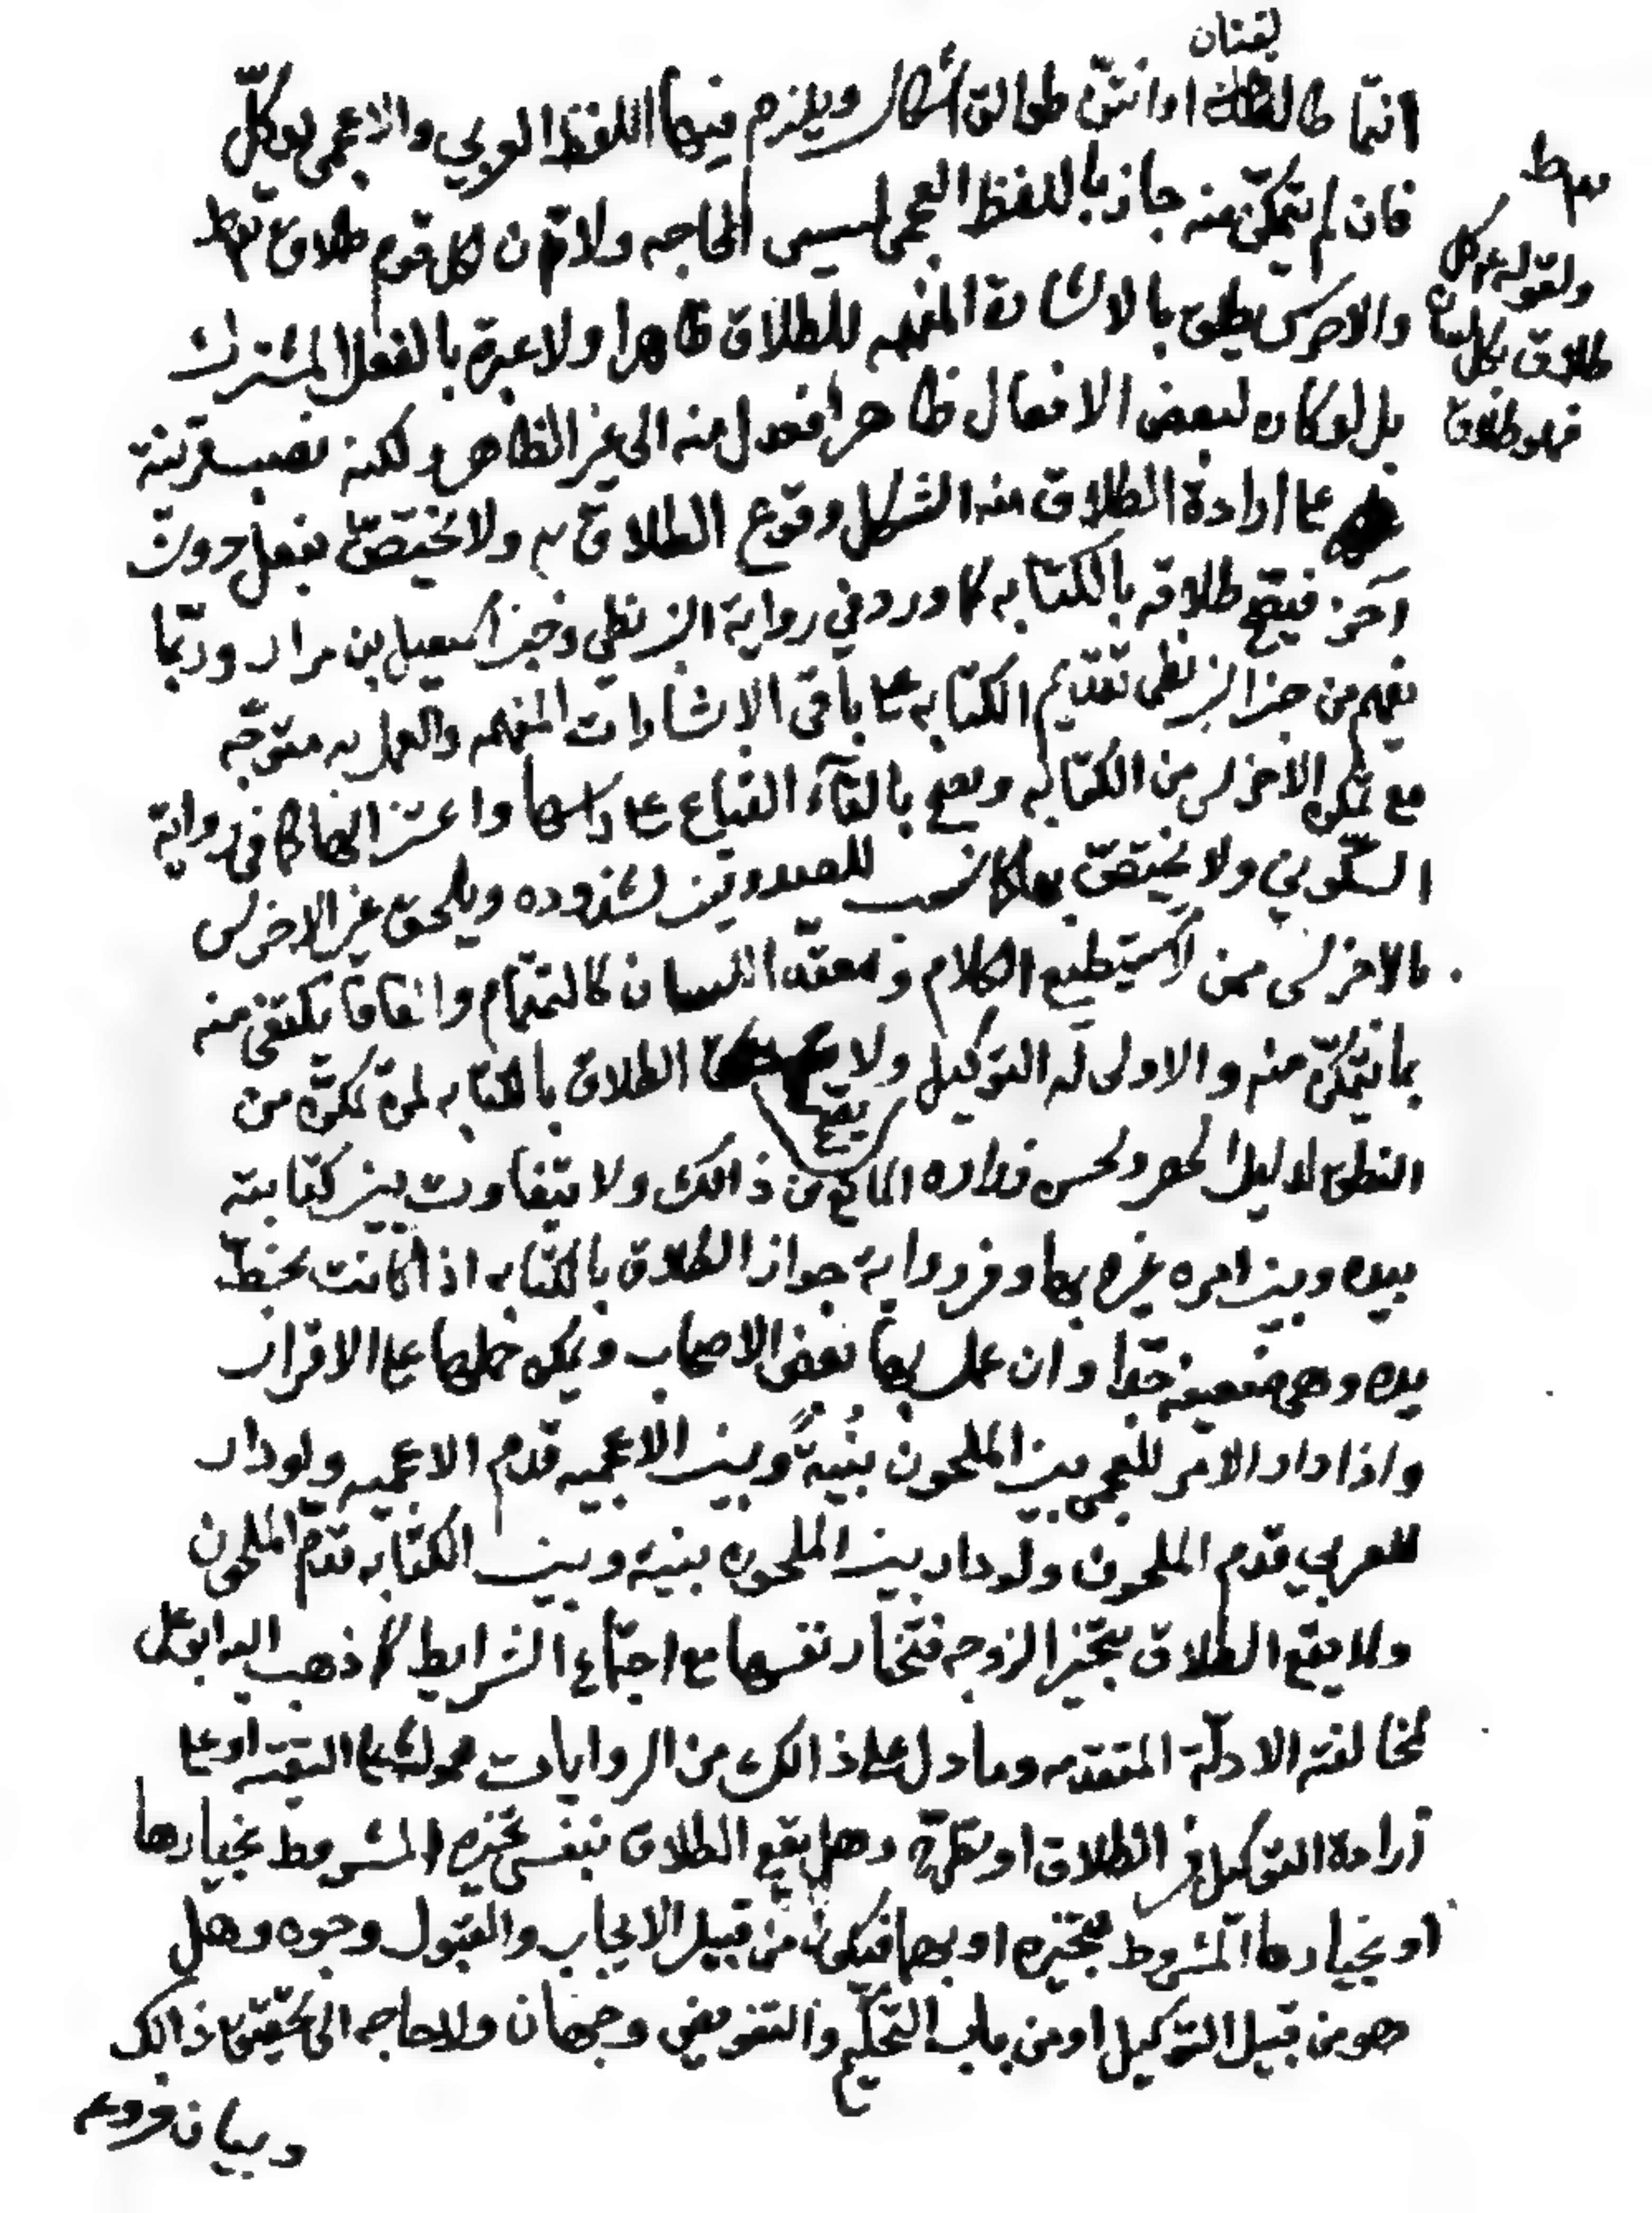 لقتان
انتما طالقتان او انتنّ طوالق اشكال ويلزم فيها اللفظ العربي والاعجمي يوكّل
فان لم يتمكّن منه جاز باللفظ العجمي لمسيس الحاجه ولانّ لكل قوم طلاق
ولقوله ع كل
طلاق بكل لسان
فهو طلاق
والاخرس يطلق بالاشارة المفهمه للطلاق ظاهرا ولا عبرة بالفعل المشترك
بل لو كان لبعض الافعال ظاهرا فعدل منه الى غير الظاهر ولكنه نصب قرينة
على ارادة الطلاق منه اشكل وقوع الطلاق به ولا يختصّ بفعل دون
آخر فيقع طلاقه بالكتابه كما ورد في رواية البزنطي وخبر اسمعيل بن مرار وربّما
يفهم من خبر البزنطي تقديم الكتابه على باقي الاشارات المفهمه والعمل به متوجّه
مع تمكن الاخرس من الكتابه ويصح بالقآء القناع على راسها واعتزالها كما في رواية
السكوني ولا يختصّ بها كما نسب للصدوقين لشذوذه ويلحق غير الاخرس
بالاخرس ممن لا يستطيع الكلام ومعقد اللسان كالتمتام والفافا يكتفى منه
بما يتمكّن منه والاولى له التوكيل ولا يقع الطلاق بالكتابه لمن تمكّن من
النطق لدليل الحصر ولحسن زراره المانع من ذالك ولا يتفاوت بين كتابته
بيده وبين امره غيره بها وفي رواية جواز الطلاق بالكتابه اذا كانت بخطّ
يده وهي ضعيفه جدّا وان عمل بها بعض الاصحاب ويمكن حملها على الاقرار
واذا دار الامر للعجمي بين الملحون بنيةً وبين الاعجميه قدم الاعجميه ولو دار
للعربي قدم الملحون ولو دار بين الملحون بنية وبين الكتابه قدّم الملحون
ولا يقع الطلاق بتخيّر الزوجه فتختار نفسها مع اجتماع الشرايط كما ذهب اليه ابو على
لمخالفته الادلّة المتقدمه وما دل على ذالك من الروايات محمولة على التقيّه او على
ارادة التوكيل في الطلاق او وهل يقع الطلاق بنفس تخييره المشروط بخيارها
او بخيارها المشروط بتخييره او بهما فيكون من قبيل الايجاب والقبول وجوه وهل
هو من قبيل التوكيل او من باب التحكيم والتفويض وجهان ولا حاجه الى تحقيق ذالك
وبيان فروعه